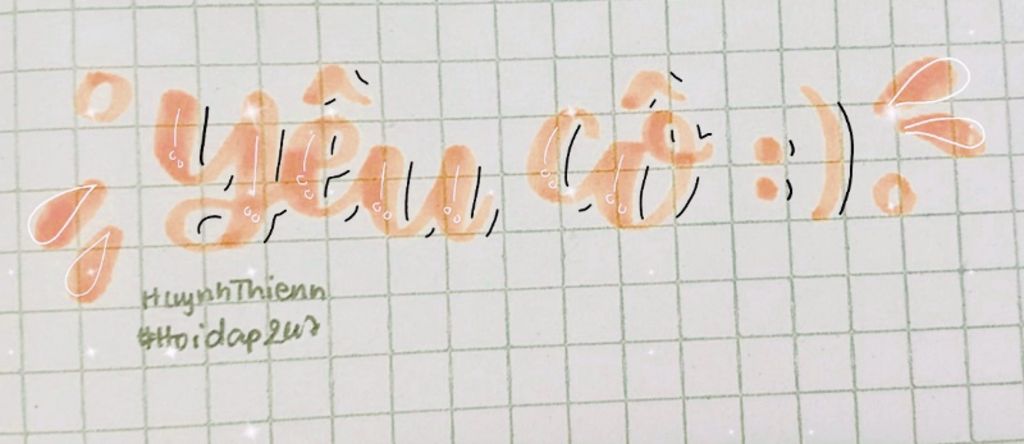 yêu cô :)
HuynhThienn
#Hoidap247